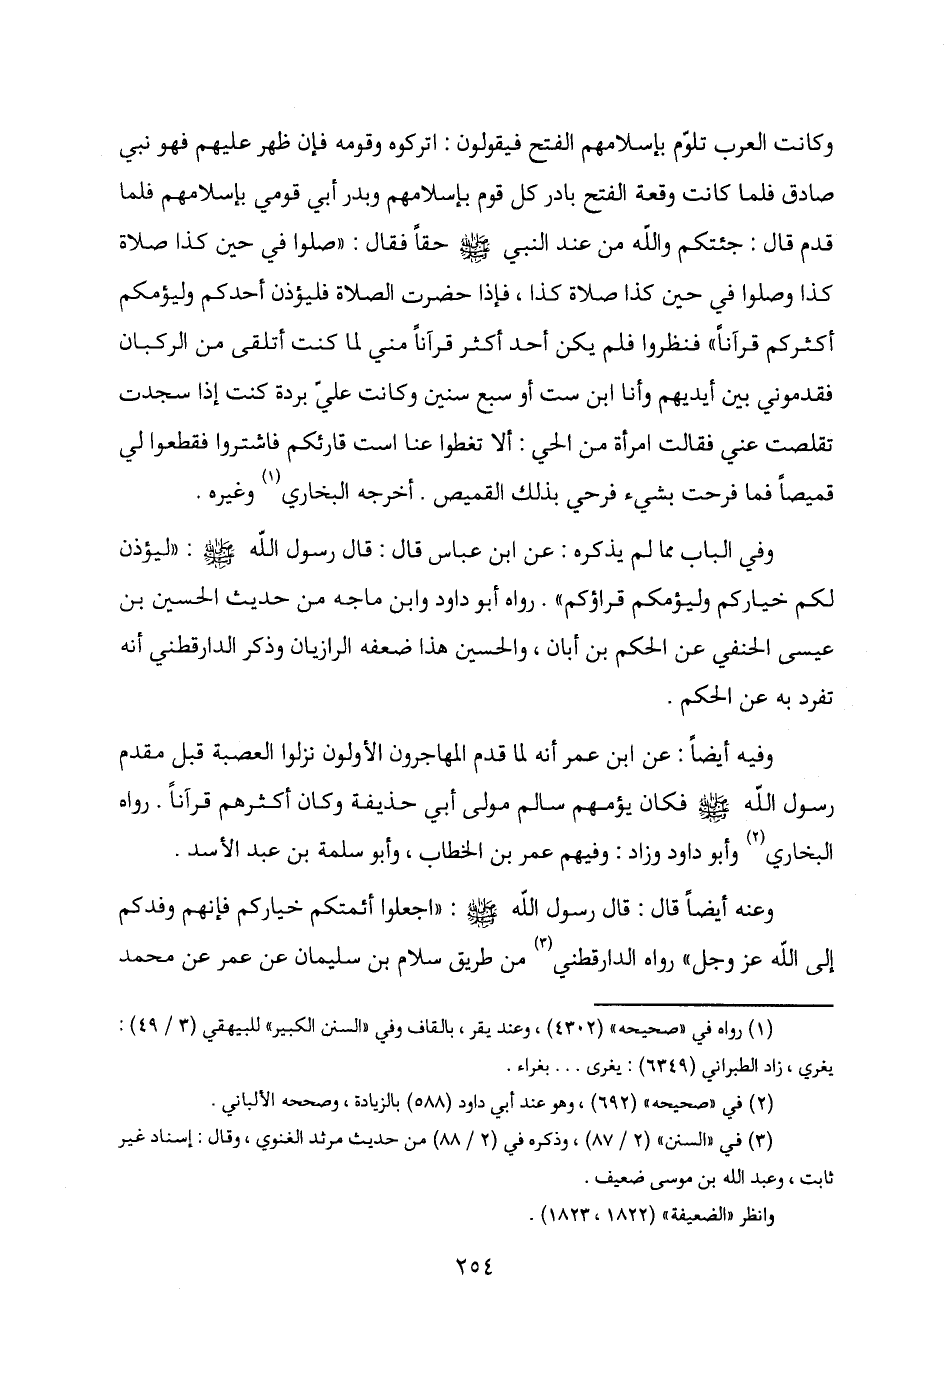 وكانت العرب تلوّم بإسلامهم الفتح فيقولون : اتركوه وقومه فإن ظهر عليهم فهو نبي
صادق فلما كانت وقعة الفتح بادر كل قوم بإسلامهم وبدر أبي قومي بإسلامهم فلما
قدم قال : جئتكم والله من عند النبي ﷺ حقاً فقال : «صلوا في حين كذا صلاة
كذا وصلوا في حين كذا صلاة كذا ، فإذا حضرت الصلاة فليؤذن أحدكم وليؤمكم
أكثركم قرآناً» فنظروا فلم يكن أحد أكثر قرآناً مني لما كنت أتلقى من الركبان
فقدموني بين أيديهم وأنا ابن ست أو سبع سنين وكانت عليّ بردة كنت إذا سجدت
تقلصت عني فقالت امرأة من الحي : ألا تغطوا عنا است قارئكم فاشتروا فقطعوا لي
قميصاً فما فرحت بشيء فرحي بذلك القميص . أخرجه البخاري(١) وغيره .
وفي الباب مما لم يذكره : عن ابن عباس قال : قال رسول الله ﷺ : «ليؤذن
لكم خياركم وليؤمكم قراؤكم» . رواه أبو داود وابن ماجه من حديث الحسين بن
عيسى الحنفي عن الحكم بن أبان ، والحسين هذا ضعفه الرازيان وذكر الدارقطني أنه
تفرد به عن الحكم .
وفيه أيضاً : عن ابن عمر أنه لما قدم المهاجرون الأولون نزلوا العصبة قبل مقدم
رسول الله ﷺ فكان يؤمهم سالم مولى أبي حذيفة وكان أكثرهم قرآناً . رواه
البخاري(٢) وأبو داود وزاد : وفيهم عمر بن الخطاب ، وأبو سلمة بن عبد الأسد .
وعنه أيضاً قال : قال رسول الله ﷺ : «اجعلوا أئمتكم خياركم فإنهم وفدكم
إلى الله عز وجل» رواه الدارقطني(٣) من طريق سلام بن سليمان عن عمر عن محمد
(١) رواه في «صحيحه» (٤٣٠٢) ، وعند يقر ، بالقاف وفي «السنن الكبير» للبيهقي (٣ / ٤٩) :
يغري ، زاد الطبراني (٦٣٤٩) : يغرى ... بغراء .
(٢) في «صحيحه» (٦٩٢) ، وهو عند أبي داود (٥٨٨) بالزيادة ، وصححه الألباني .
(٣) في «السنن» (٢ / ٨٧) ، وذكره في (٢ / ٨٨) من حديث مرثد الغنوي ، وقال : إسناد غير
ثابت ، وعبد الله بن موسى ضعيف .
وانظر «الضعيفة» (١٨٢٢ ، ١٨٢٣) .
٢٥٤